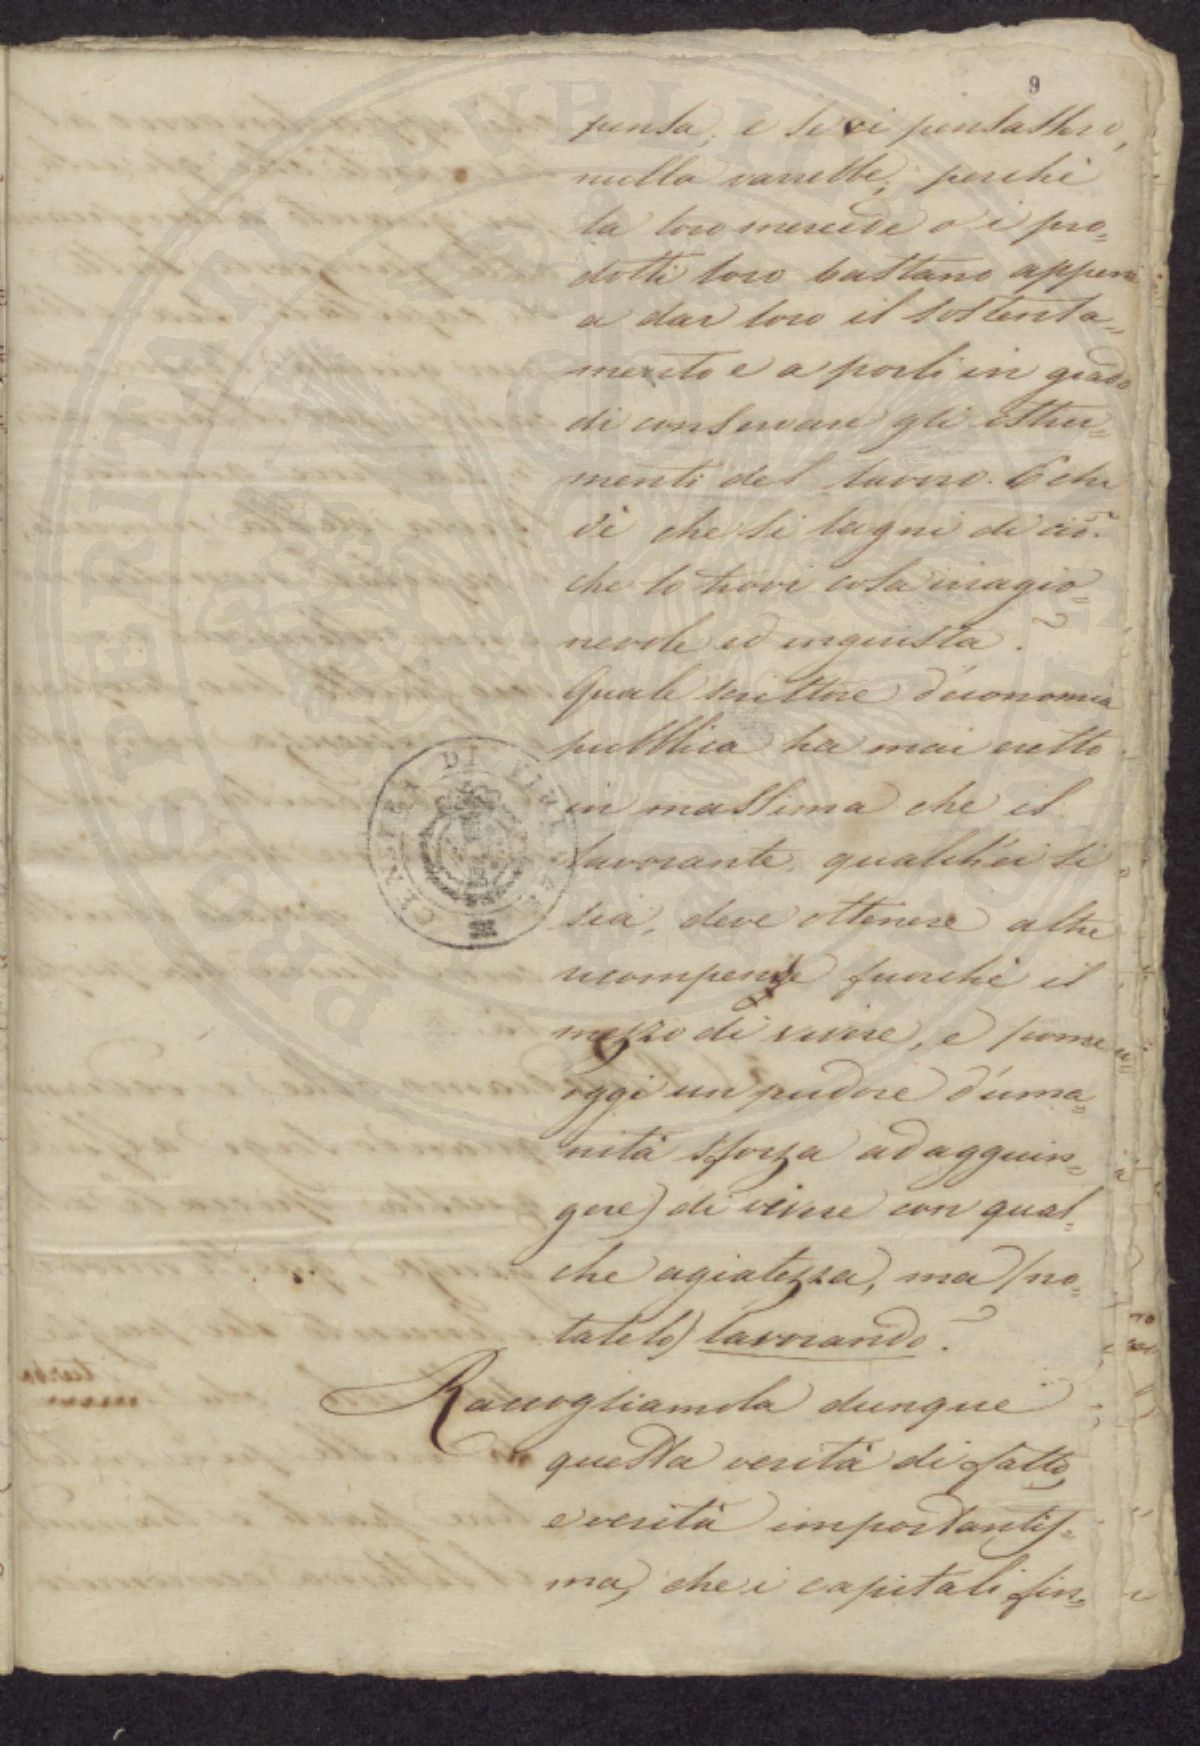 9
pensa, e se vi pensassero,
nulla varrebbe; perchè
la loro mercede o i pro=
dotti loro bastano appena
a dar loro il sostenta=
mento e a porli in grado
di conservare gli istru=
menti del lavoro. E chi
v'è che si lagni di ciò?
che lo trovi cosa irragio=
nevole ed ingiusta?
Quale scrittore d'economia
pubblica ha mai eretto
in massima che il
lavorante, qualch'ei si
sia, deve ottenere altre
ricompense fuorchè il
mezzo di vivere, e (come
oggi un pudore d'uma=
nità sforza ad aggiun=
gere) di vivere con qual=
che agiatezza, ma (no=
tatelo) lavorando?
Raccogliamola dunque
questa verità di fatto,
e verità importantis=
ma, che i capitali fin=
PROSPERITATI PUBLICAE
CENSURA DI FIRENZE